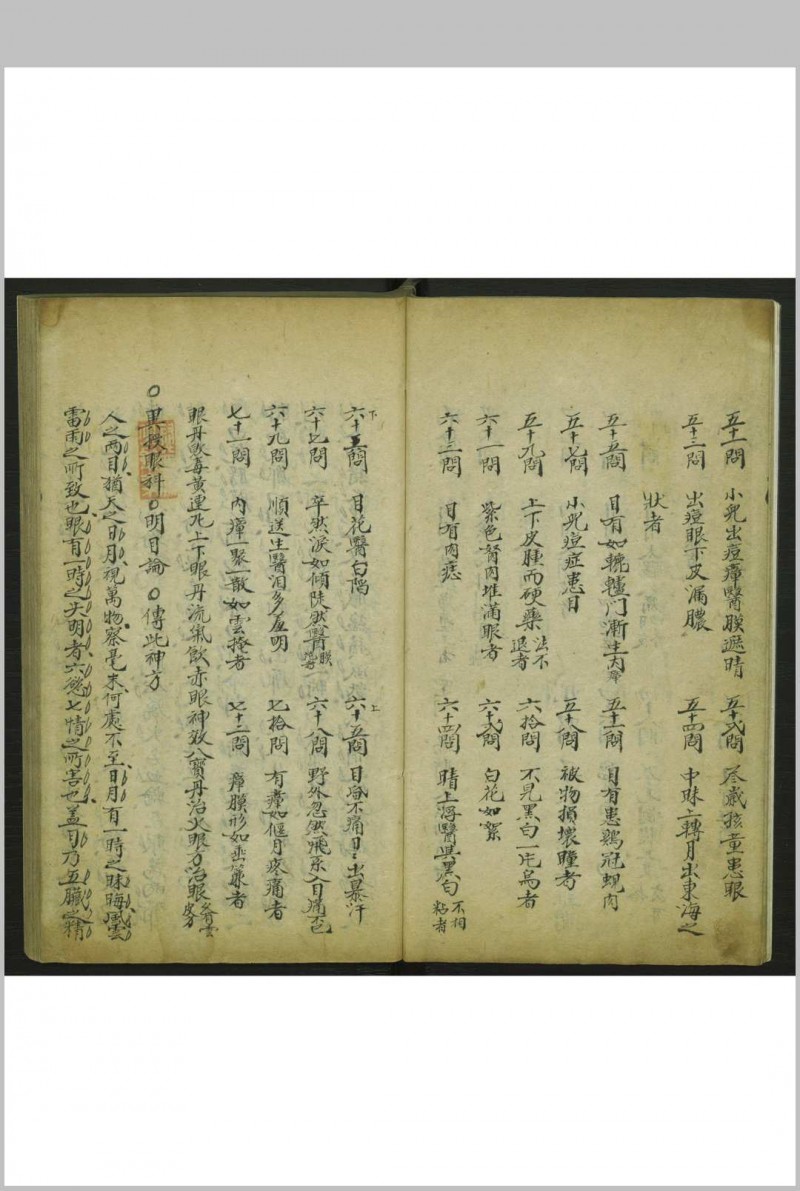 五十一問 小兒出痘瘴翳膜遮睛 五十弍問 叁歲孩童患眼
五十三問 出痘眼下皮漏膿 五十四問 中昧上轉月出東海之
狀者
五十五問 目有如轆轤門漸生肉 五十六問 目有患鷄冠蜆肉
五十七問 小兒痘症患目 五十八問 被物損壞瞳者
五十九問 上下皮腫而硬藥法不退者 六拾問 不見黑白一片烏者
六十一問 紫色胬肉堆滿眼者 六十弍問 白花如絮
六十三問 目有肉痣 六十四問 睛上浮翳與黑白不相粘者
下六十五問 目花翳白陷 上六十五問 目昏不痛日日出暴汗
六十七問 卒然淚如傾陡然翳膜 六十八問 野外忽然飛系入目痛不已
六十九問 順送生翳泪多羞明 七拾問 有瘴如偃月疼痛者
七十一問 內瘴一聚一散如雲掩者 七十二問 瘴膜形如垂簾者
眼丹敗毒黃連九上下眼丹流氣飲赤眼神效八寶丹治火眼方治眼
○異授眼科○明目論 ○傳此神方
人之兩目猶天之日月視萬物察毫末何處不至日月有一時之昧晦風雲
雷雨之所致也眼有一時之失明者六慾七情之所害也蓋目乃五臟之精